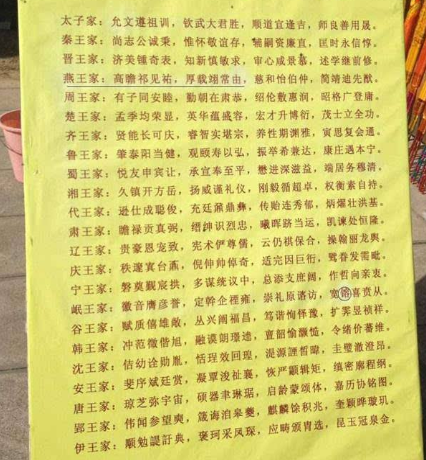 太子家：允文遵祖训，钦武大君胜，顺道宜逢吉，师良善用晟。
秦王家：尚志公诚秉，惟怀敬谊存，辅嗣资廉直，匡时永信惇。
晋王家：济美锺奇表，知新慎敏求，审心咸景慕，述学继前修。
燕王家：高瞻祁见祐，厚载翊常由，慈和怡伯仲，简靖迪先猷。
周王家：有子同安睦，勤朝在肃恭，绍伦敷惠润，昭格广登庸。
楚王家：孟季均荣显，英华蕴盛容，宏才升博衍，茂士立全功。
齐王家：贤能长可庆，睿智实堪宗，养性期渊雅，寅思复会通。
鲁王家：肇泰阳当健，观颐寿以弘，振举希兼达，康庄遇本宁。
蜀王家：悦友申宾让，承宣奉至平，懋进深滋益，端居务穆清。
湘王家：久镇开方岳，扬威谨礼仪，刚毅循超卓，权衡素自持。
代王家：逊仕成聪俊，充廷鼐鼎彝，传贻连秀郁，炳燿壮洪基。
肃王家：瞻禄贡真弼，缙绅识烈忠，曦晖跻当运，凯谏处恒隆。
辽王家：贵豪恩宠致，宪术俨尊儒，云仍祺保合，操翰丽龙舆。
庆王家：秩邃寘台鼒，倪伸帅倬奇，适完因巨衍，鸳眷发需毗。
宁王家：磐奠觐宸拱，多谋统议中，总添支庶阔，作哲向亲衷。
岷王家：徽音膺彦誉，定幹企禋雍，崇礼原谘访，宽镕喜贲从。
谷王家：赋质僖雄敞，丛兴阐福昌，笃谐恂怿豫，扩霁显祯祥。
韩王家：冲范徵偕旭，融谟朗璟逵，亶韶愉灏慥，令绪价蕃维。
沈王家：佶幼诠勋胤，恬珵效回瑝，湜源諲晢暐，圭璧澈澄昂。
安王家：斐序斌廷赏，凝覃浚祉襄，恢严颛辑矩，缜密廓程纲。
唐王家：琼芝弥宇宙，硕器聿琳琚，启龄蒙颂体，嘉历协铭图。
郢王家：伟闻参望奭，箴诲洎皋夔，麒麟馀积兆，奎颖晔璇玑。
伊王家：顒勉諟訏典，褒珂采凤琛，应畴颁胄选，昆玉冠泉金，